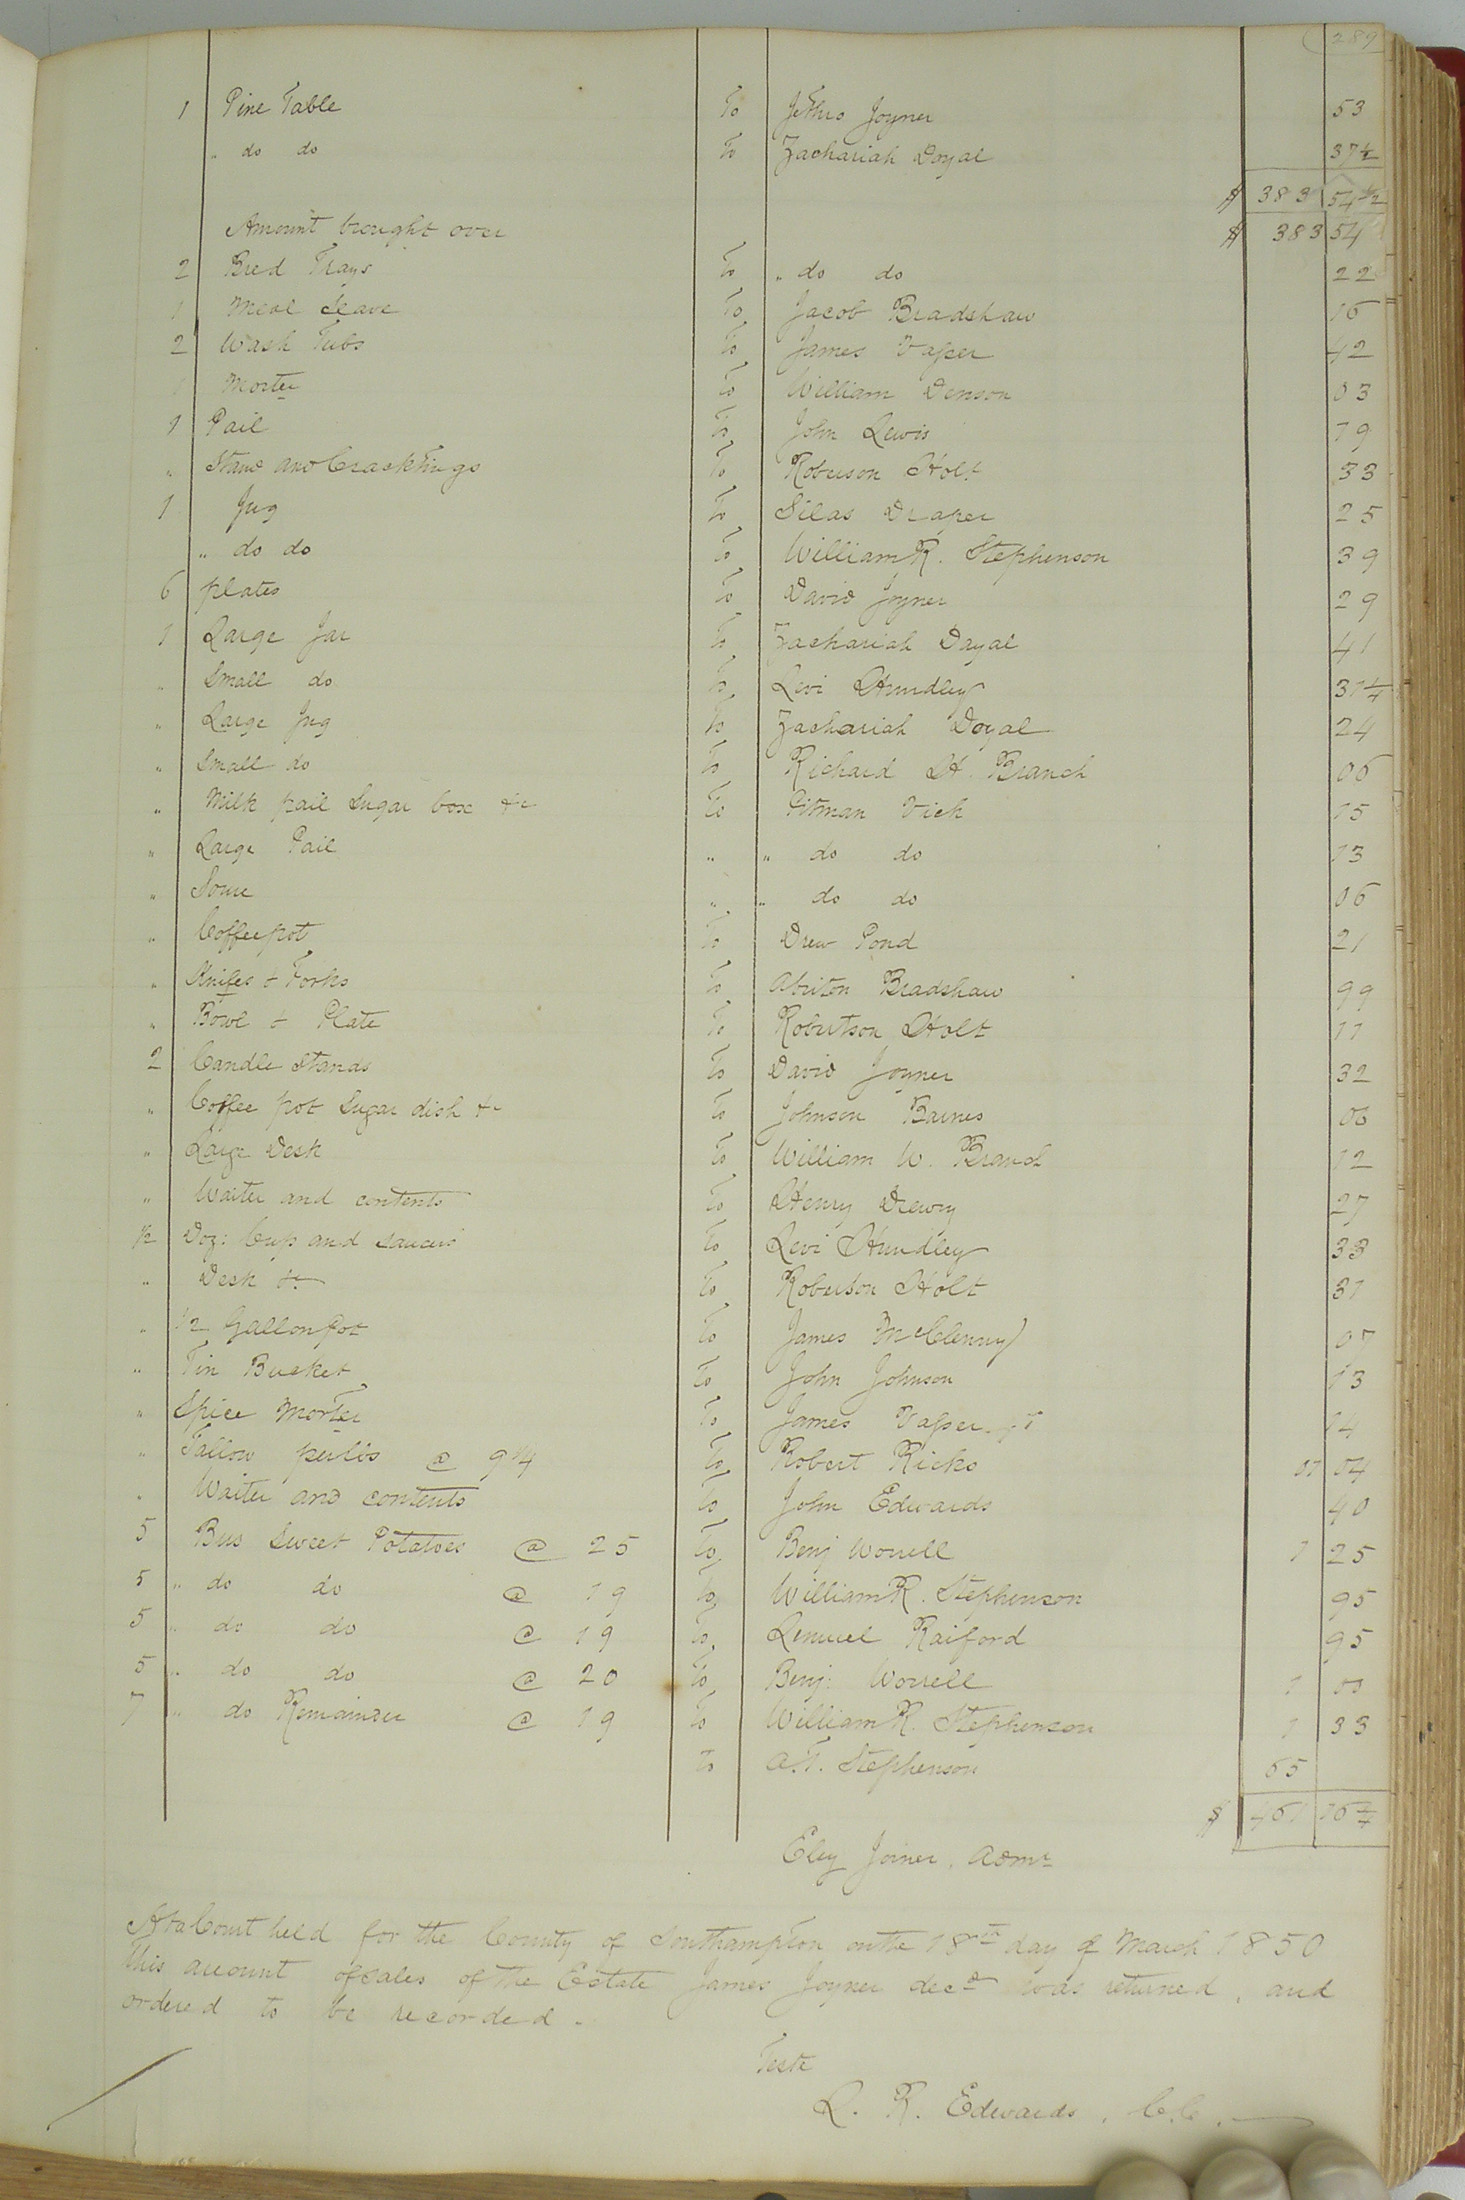 289
1 Pine Table To Jethro Joyner 53
" do do To Zachariah Doyal 37½
$ 383 54½
Amount brought over $ 383 54
2 Bred Trays To " do do 22
1 Meal Seave To Jacob Bradshaw 16
2 Wash Tubs To James Vasser 42
1 Morter To William Denson 03
1 Pail To John Lewis 19
" Stand and Cracktings To Roberson Holt 33
1 Jug To Silas Draper 25
" do do To William R. Stephenson 39
6 plates To David Joyner 29
1 Large Jar To Zachariah Dayal 41
" Small do To Levi Hundley 31¼
" Large Jug To Zachariah Doyal 24
" Small do To Richard H. Branch 06
" Milk pail Sugar box &c To Pitman Vick 15
" Large Pail " " do do 13
" Some " " do do 06
" Coffeepot To Drew Pond 21
" Knifes & Forks To Abriton Bradshaw 99
" Bowl & Plate To Robertson Holt 11
2 Candle Stands To David Joyner 32
" Coffee pot Sugar dish &c To Johnson Barnes 06
" Large Desk To William W. Branch 12
" Waiter and contents To Henry Drewry 27
½ Doz: Cups and saucers To Levi Hundley 33
" Desk &c To Roberson Holt 31
" ½ Gallon Pot To James McClenny 07
" Tin Bucket To John Johnson 13
" Spice Morter To James Vasser 14
" Tallow per lbs @ 9¼ To Robert Ricks 01 04
" Waiter and contents To John Edwards 40
5 Bus Sweet Potatoes @ 25 To Benj Worrell 1 25
5 " do do @ 19 To William R. Stephenson 95
5 " do do @ 19 To Lemuel Raiford 95
5 " do do @ 20 To Benj: Worrell 1 00
7 " do Remainder @ 19 To William R. Stephenson 1 33
To A.T. Stephenson 65
$ 461 16¼
Eley Joiner, Admr
At a Court held for the County of Southampton on the 18th day of March 1850
This account of sales of the Estate James Joyner decd was returned, and
ordered to be recorded.
Teste
L. R. Edwards, C.C.